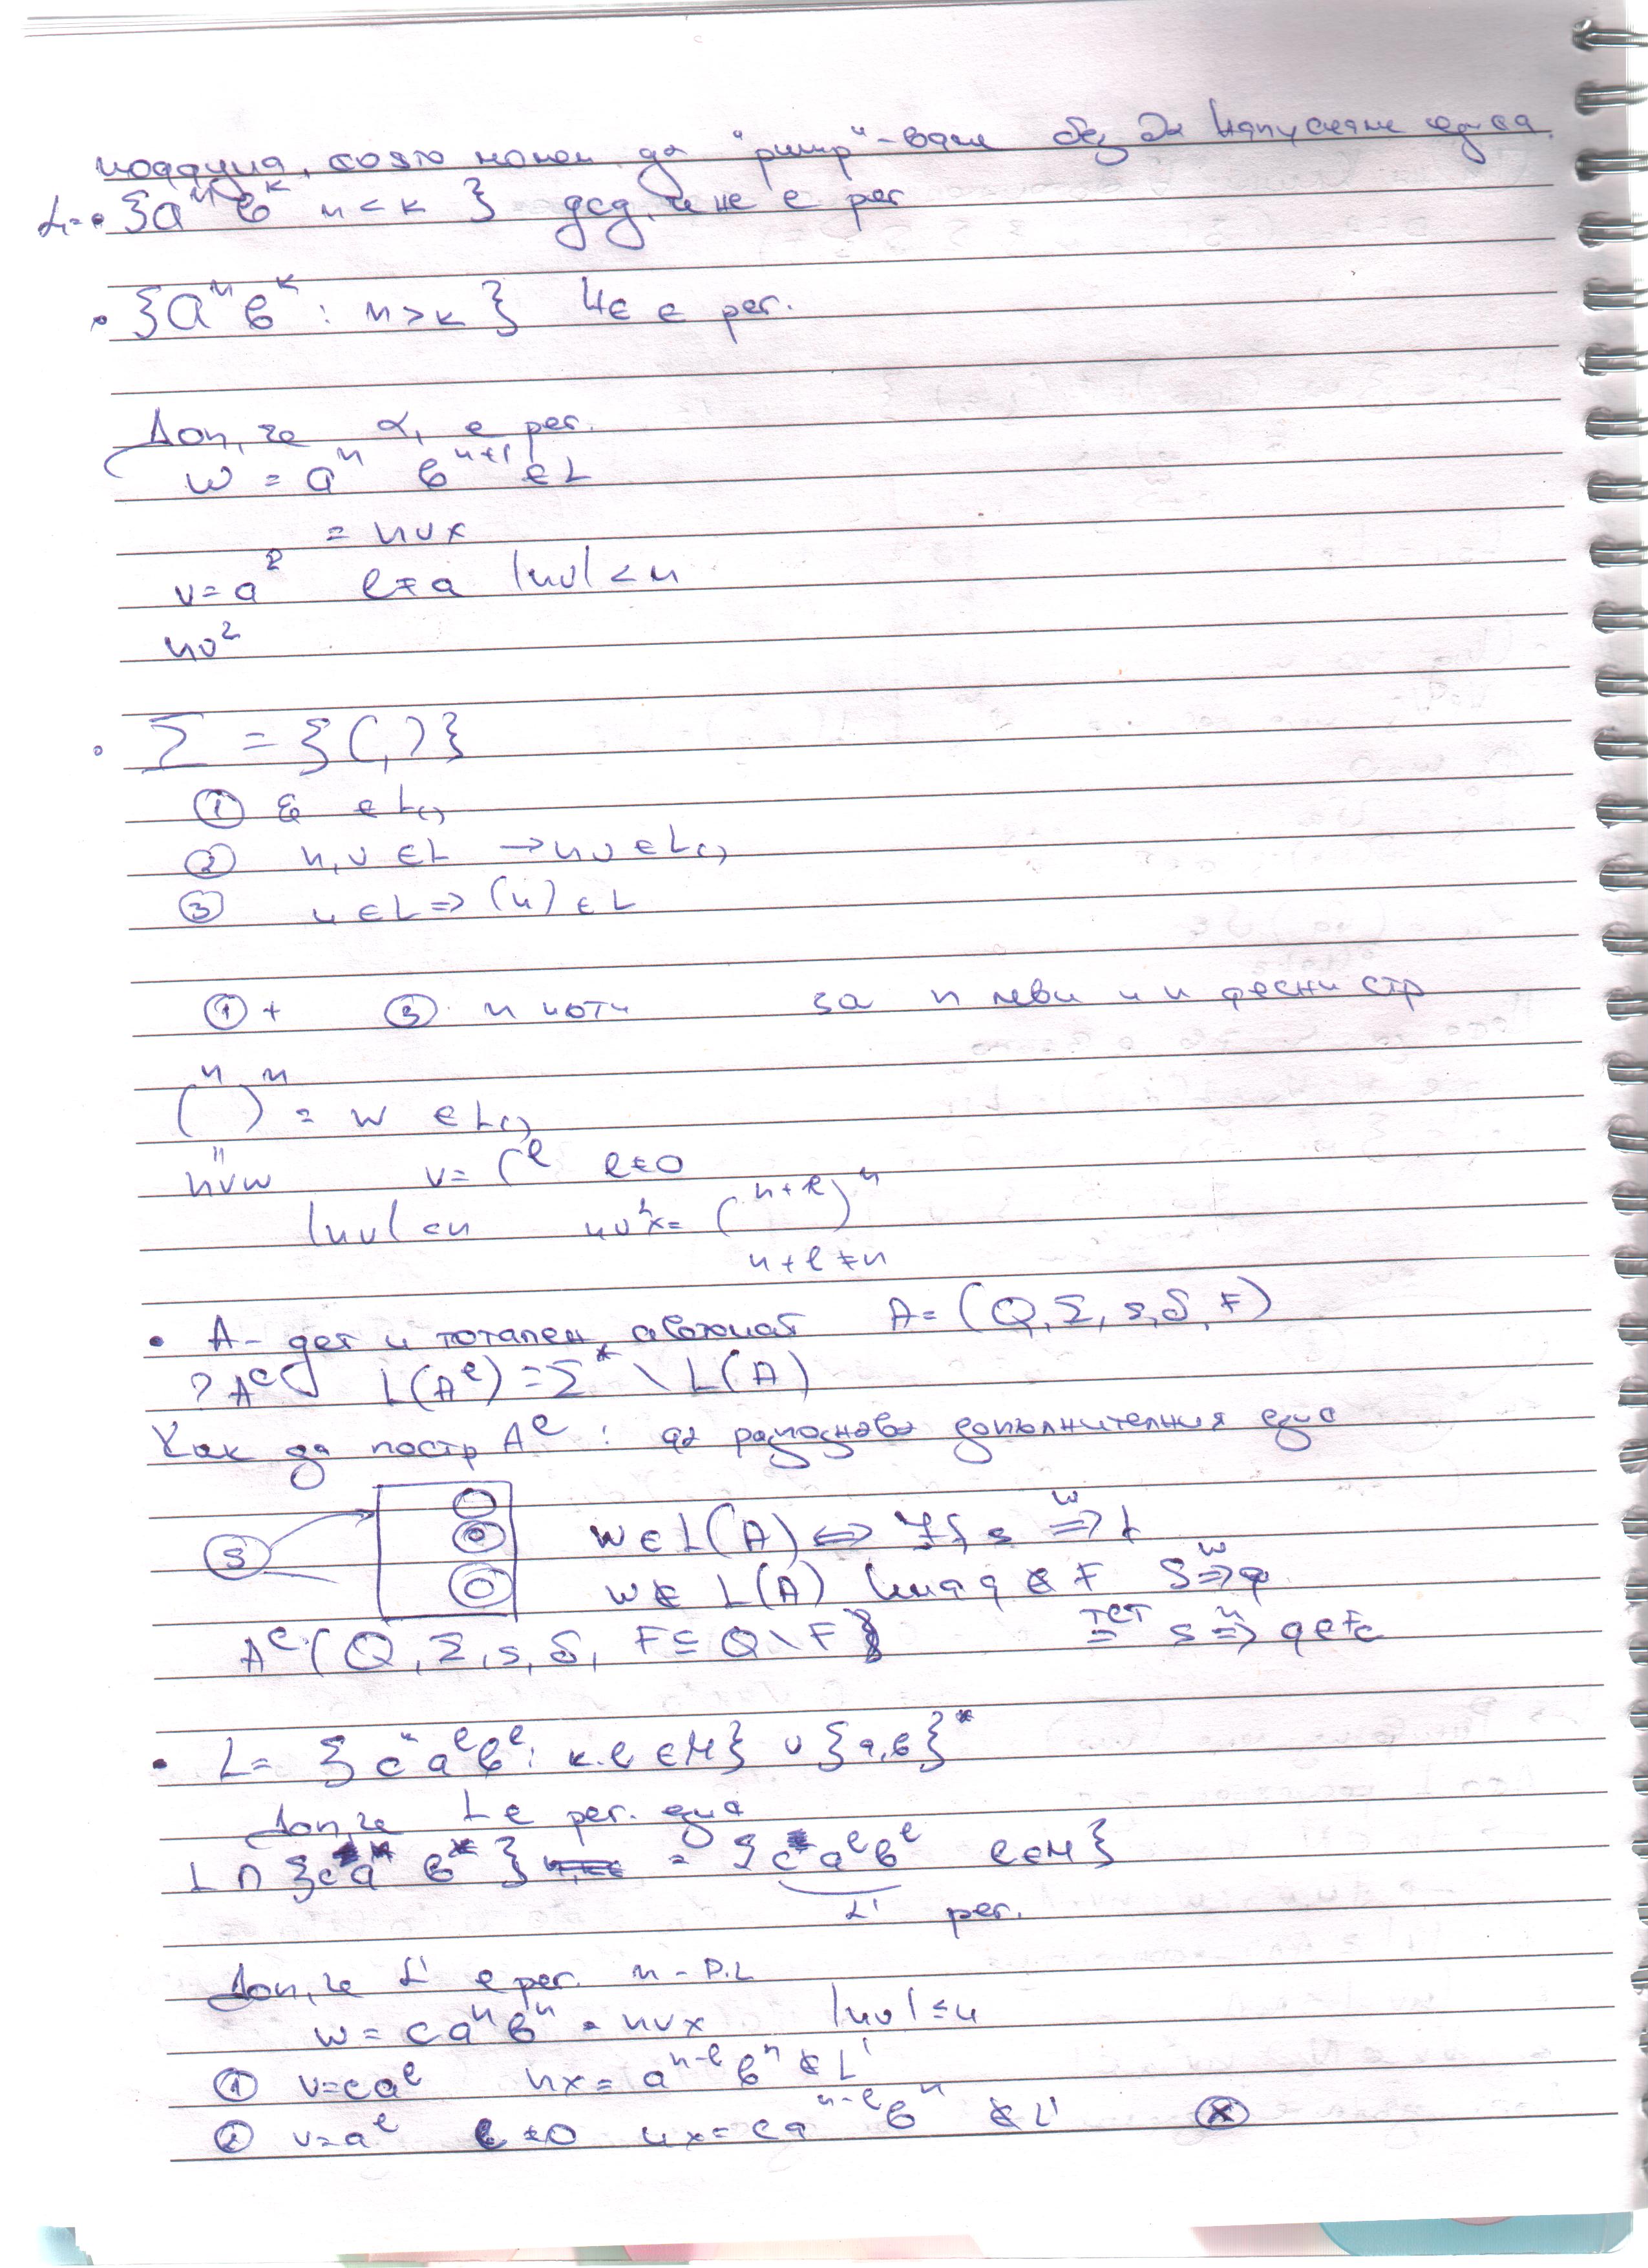 поддума, която можем да "pump"-ваме без да напускаме езика.
L₁= • {aⁿ вᵏ n < k } дсд, че не е рег
• {aⁿ вᵏ : n > k } Не е рег.
Доп, че L₁ е рег.
w = aⁿ вⁿ⁺¹ ∈ L
= uvx
v = a^l l ≠ 0 |uv| < n
uv²
• Σ = {(, )}
① ε ∈ L()
② u, v ∈ L → uv ∈ L()
③ u ∈ L ⇒ (u) ∈ L
① + ③ n пъти за n леви и n десни
(ⁿ )ⁿ = w ∈ L()
"
uvw v = (^l l ≠ 0
|uv| < n uv²x = (ⁿ⁺ˡ )ⁿ
n + l ≠ n
• A – дет и тотален автомат A = (Q, Σ, s, δ, F)
? Aᶜ L(Aᶜ) = Σ* \ L(A)
Как да постр Aᶜ : да разпознава допълнителния език
s
w ∈ L(A) ⇔ ∃f s ⇒ʷ f
w ∉ L(A) има q ∉ F s ⇒ʷ q
Aᶜ (Q, Σ, s, δ, F ⊆ Q \ F} s ⇒ q ∈ Fc
• L = {cᵏ a^l в^l : k, l ∈ N} ∪ {a, в}*
Доп, че L е рег. език
L ∩ {ca* в* } = {c a^l в^l l ∈ N}
L' рег.
Доп, че L' е рег. n – P.L
w = caⁿвⁿ = uvx |uv| ≤ n
① v = ca^l ux = aⁿ⁻ˡ вⁿ ∉ L'
② v = a^l l ≠ 0 ux = caⁿ⁻ˡ вⁿ ∉ L' ⊗